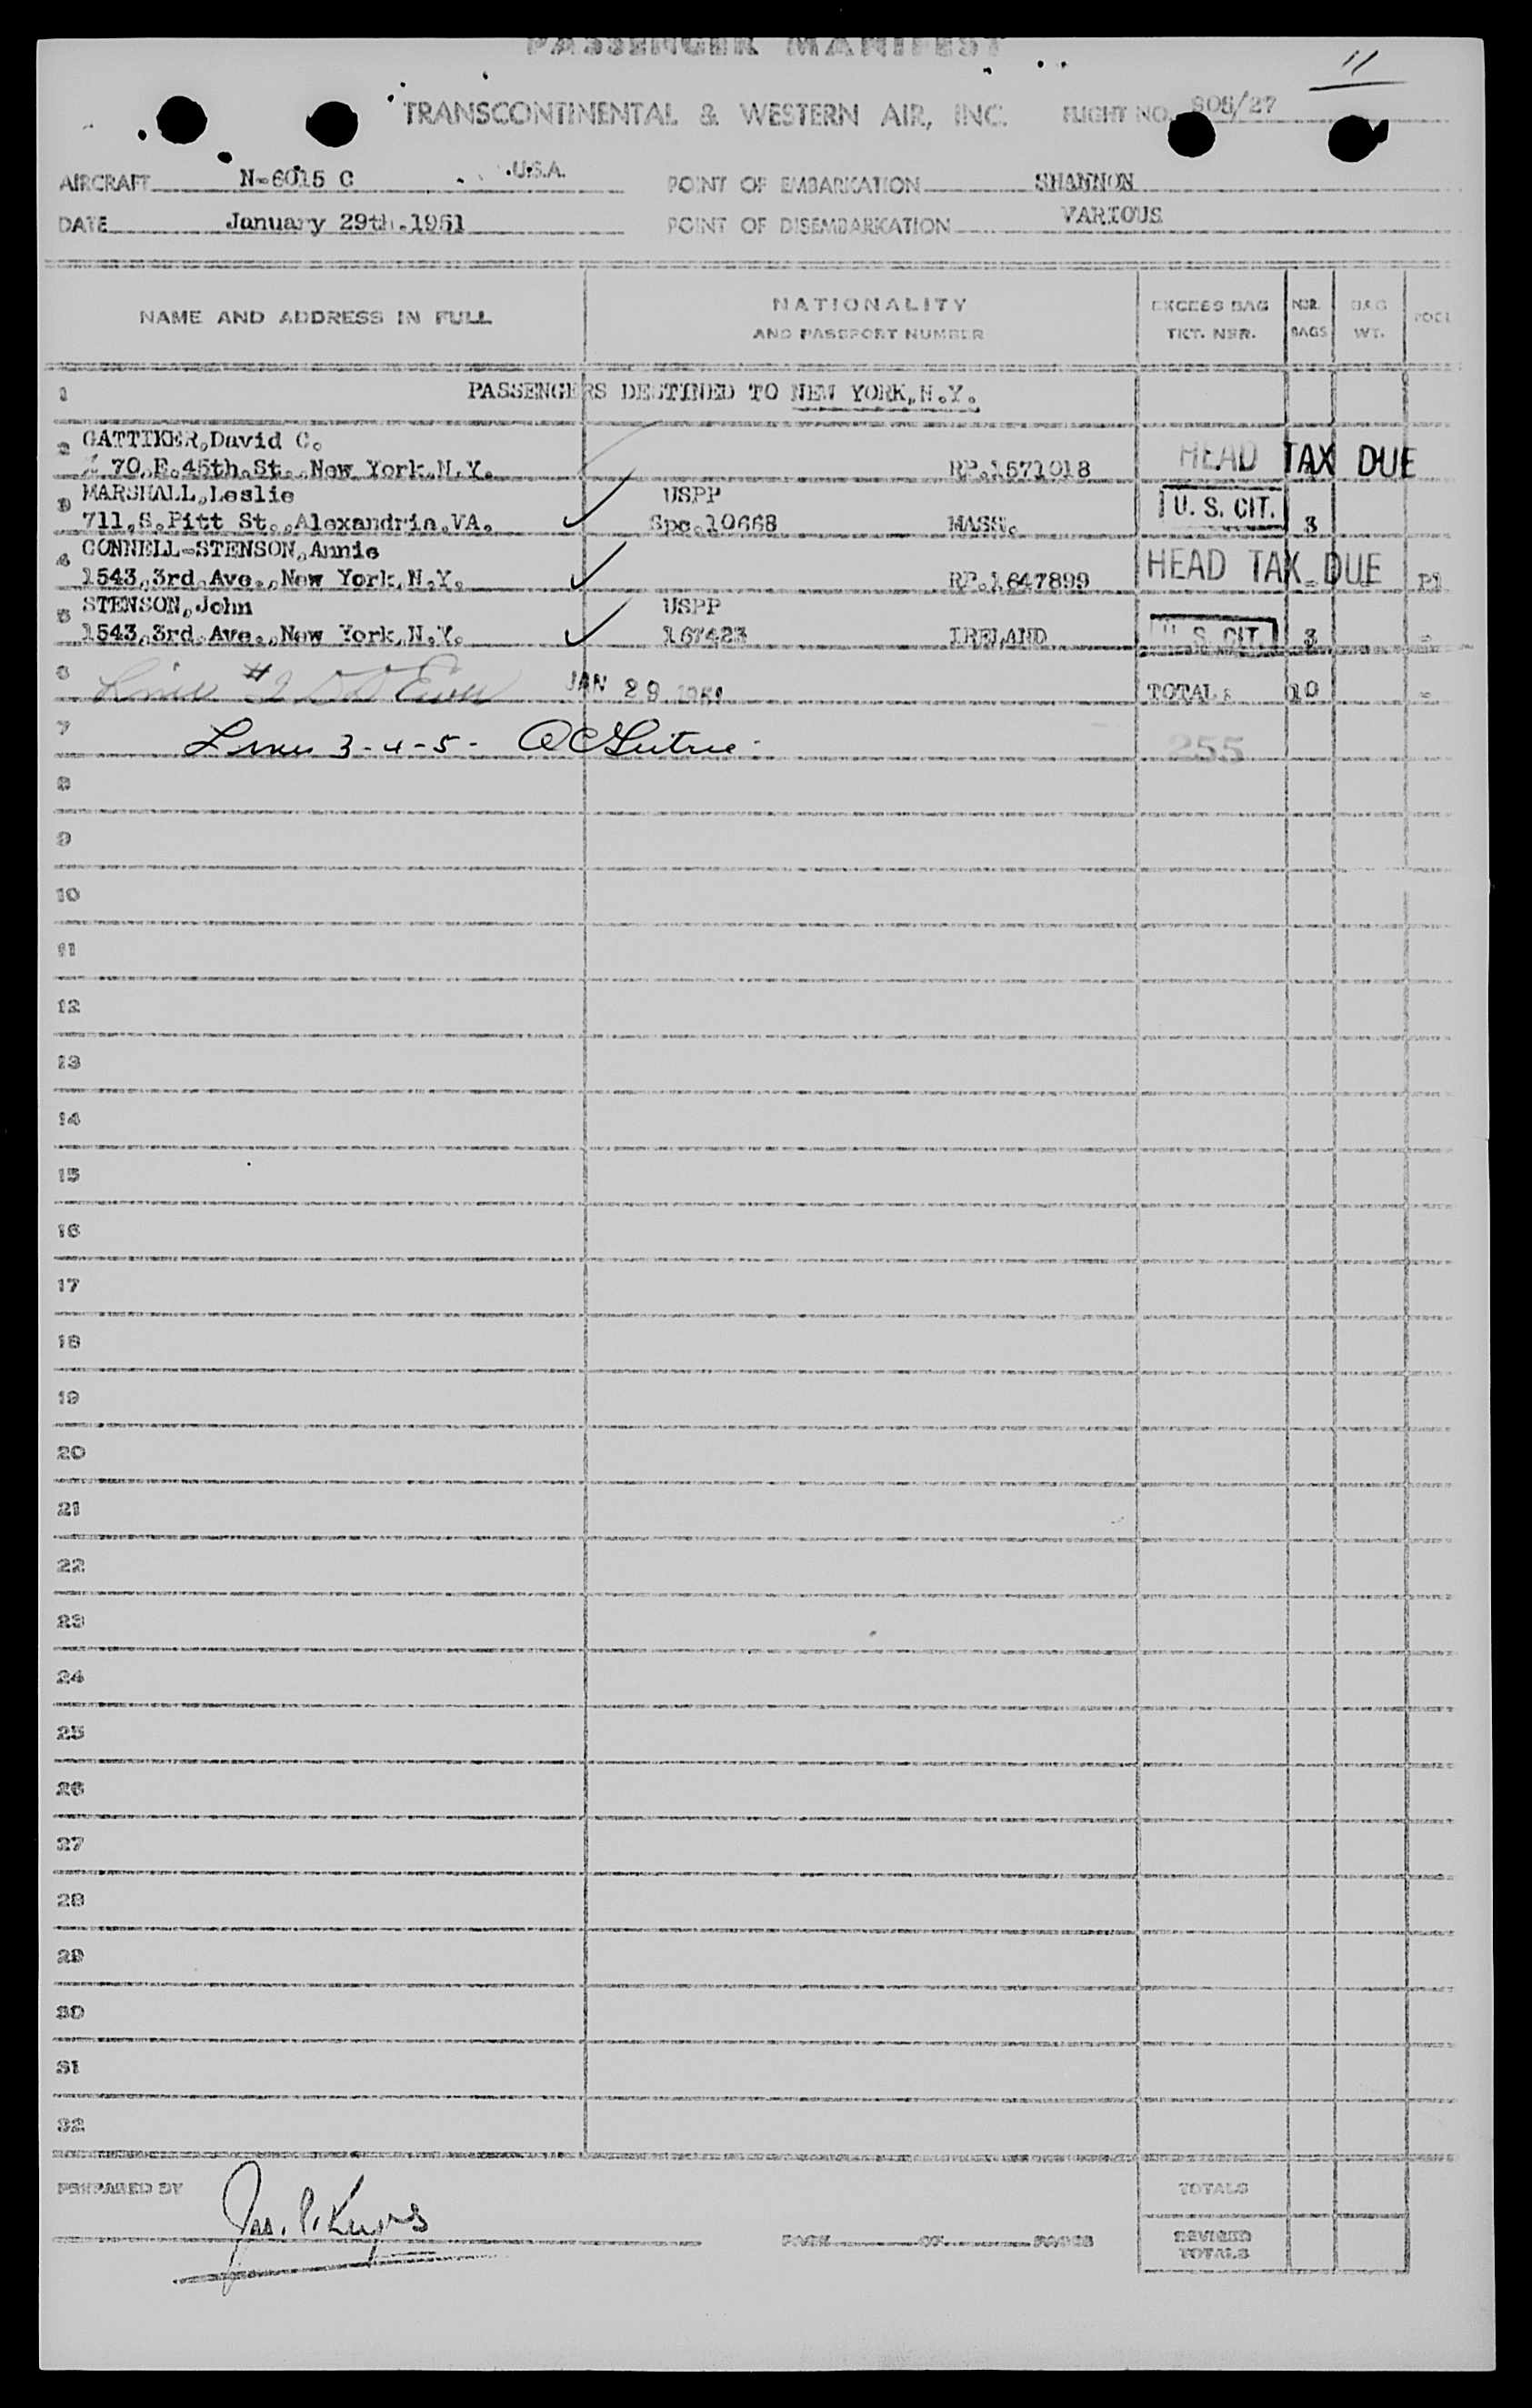 PASSENGER MANIFEST
11
TRANSCONTINENTAL & WESTERN AIR, INC. FLIGHT NO. 905/27
AIRCRAFT N-6015 C U.S.A. POINT OF EMBARKATION SHANNON
DATE January 29th.1951 POINT OF DISEMBARKATION VARIOUS
NAME AND ADDRESS IN FULL NATIONALITY AND PASSPORT NUMBER EXCESS BAG TKT. NBR. NBR. BAGS BAG WT.
1 PASSENGERS DESTINED TO NEW YORK,N.Y.
2 GATTIKER,David C.
70.E.45th.St.,New York.N.Y. RP.1571018 HEAD TAX DUE
3 MARSHALL,Leslie USPP
711.S.Pitt St.,Alexandria.VA. Spc.10668 MASS. U. S. CIT. 3
4 CONNELL-STENSON,Annie
1543.3rd.Ave.,New York.N.Y. RP.1647899 HEAD TAX DUE
5 STENSON,John USPP
1543.3rd.Ave.,New York.N.Y. 167423 IRELAND U. S. CIT. 3
6 #2 JAN 29 1951 TOTAL: 10 -
7 Lines 3-4-5- 255
8
9
10
11
12
13
14
15
16
17
18
19
20
21
22
23
24
25
26
27
28
29
30
31
32
PREPARED BY TOTALS
PAGE OF PAGES REVISED TOTALS